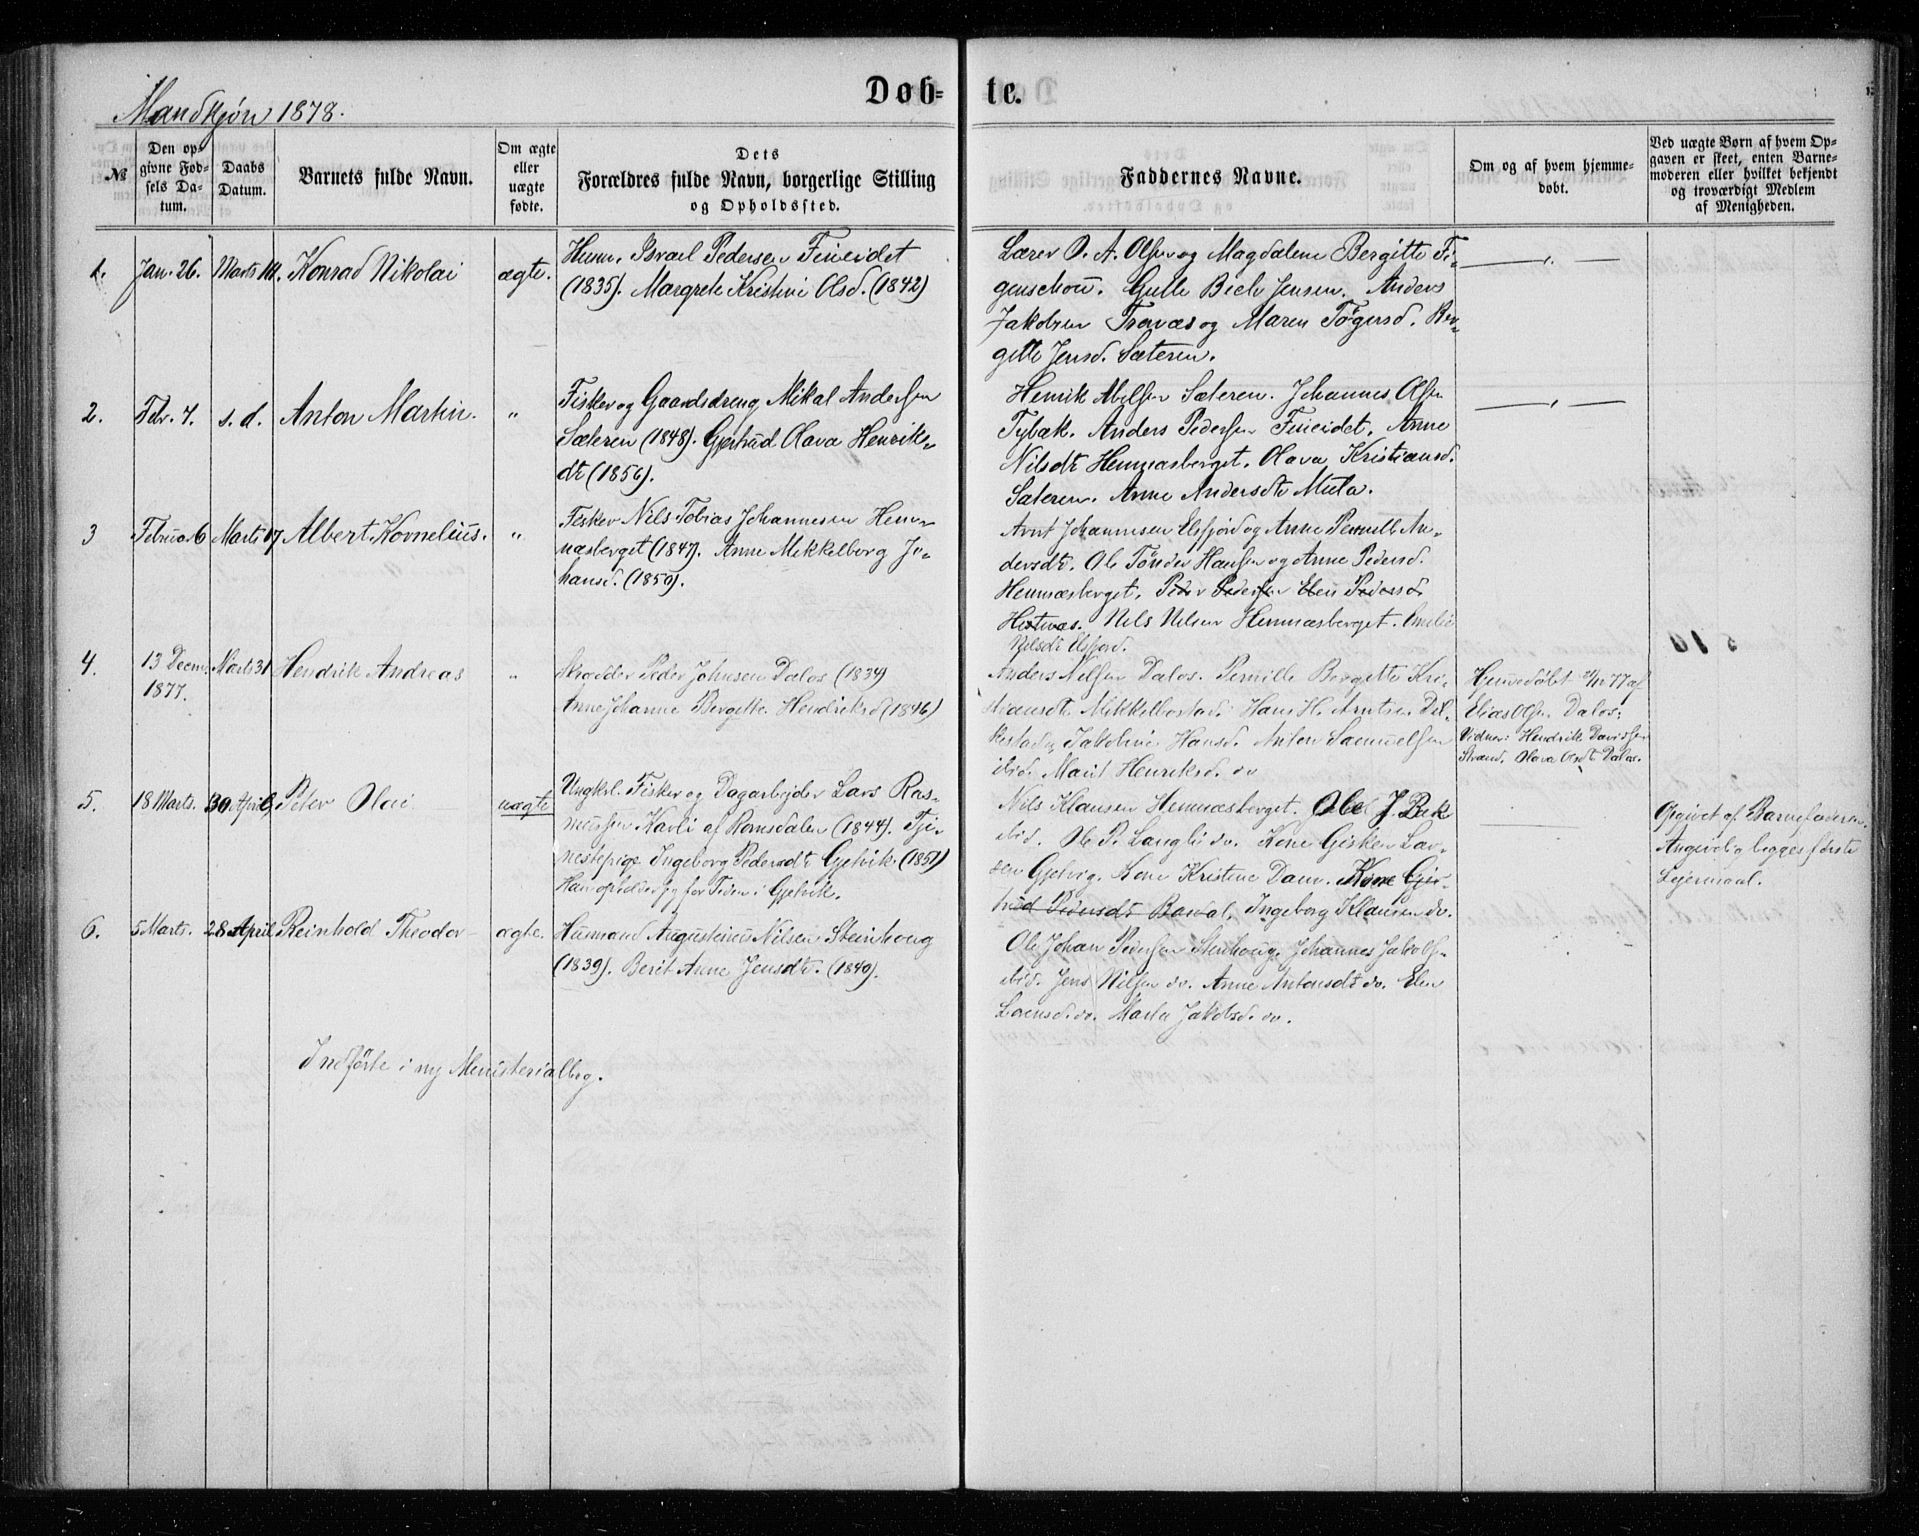 Mandkjøn 1878.
Døb-
te.
№
Den op-
givne Fød-
sels Da-
tum.
Daabs
Datum.
Barnets fulde Navn.
Om ægte
eller
uægte
fødte.
Dets
Forældres fulde Navn, borgerlige Stilling
og Opholdssted.
Faddernes Navne.
Om og af hvem hjemme-
døbt.
Ved uægte Børn af hvem Op-
gaven er skeet, enten Barne-
moderen eller hvilket bekjendt
og troværdigt Medlem
af Menigheden.
1. Jan. 26. Marts Konrad Nikolai ægte.
Husm. Israel Pedersen Fineidet
(1835). Margrete Kristine Olsd. (1842)
Lærer O. A. Olsen og Magdalene Bergitte Fi-
genschou. Gulle Bech Jensen. Anders
Jakobsen Travæs og Maren Tøgersd. Ber-
gitte Jensd. Sæteren.
2. Febr. 7. s. d. Anton Martin. "
Fisker og Gaardsdreng Mikal Andersen
Sæteren (1848). Gjertrud Olava Henriks-
dtr (1856).
Henrik Abelsen Sæteren. Johannes Olsen
Tybæk. Anders Pedersen Fineidet. Anne
Nilsdtr Hemnæsberget. Olava Kristiansd.
Sæteren. Anne Andersdtr Mula.
3 Februa 6 Marts 17 Albert Kornelius. "
Fisker Nils Tobias Johannesen Hem-
næsberget (1847). Anne Mekkelborg Jo-
hansd. (1850).
Arnt Johannesen Elsfjord og Anne Pernille An-
dersdtr. Ole Tønder Hansen og Anne Pedersd.
Hemnæsberget. Peder Pedersen Elen Pedersd.
Hestnæs. Nels Nelsen Hemnæsberget. Amelie
Nilsdtr Elsfjord.
4. 13 Decmb
1877. Marts 31 Hendrik Andreas "
Skrædder Peder Johnsen Dalos (1834)
Anne Johanne Bergette Hendriksd (1846)
Anders Nelsen Dalos. Pernille Bergitte Kri-
stiansdtr Mikkelbostad. Hans H. Arntsen
Jakobine Hansd. Anton Samuelsen
ibid. Marit Henriksd. do
Hjemmedøbt 77 af
Elias Olsen Dalos.
Vidner: Hendrik Davidsen
Strand. Olava Olsdt Dalos.
5. 18 Marts. 30 April Peter Olai uægte
Ungkrl. Fisker og Dagarbejder Lars Ras-
mussen Havli af Romsdalen (1844). Tje-
nestepige Ingeborg Pedersdtr Gjelvik. (1851)
Han opholder sig for Tiden i Gjelvik.
Nils Klausen Hemnæsberget. Ole J. Bæk
ibid. Ole P. Langli do. Kone Gisken Lar-
sen Gjelvig. Kone Kristine Dam. Kone Gjer-
trud Pedersdtr Basdal. Ingeborg Klausen do.
Opgivet af Barnefaderen.
Angivelig begges første
Lejermaal.
6. 5 Marts. 28 April Reinhold Theodor ægte.
Husmand Augustinus Nilsen Steinhoug
(1839). Beret Anne Jensdtr. (1840).
Ole Johan Pedersen Stenhoug. Johannes Jakobsen
ibid. Jens Nilsen do. Anne Antonsdtr do. Elen
Larensd. do. Marta Jakobsd. do.
Indførte i ny Ministerialbog.